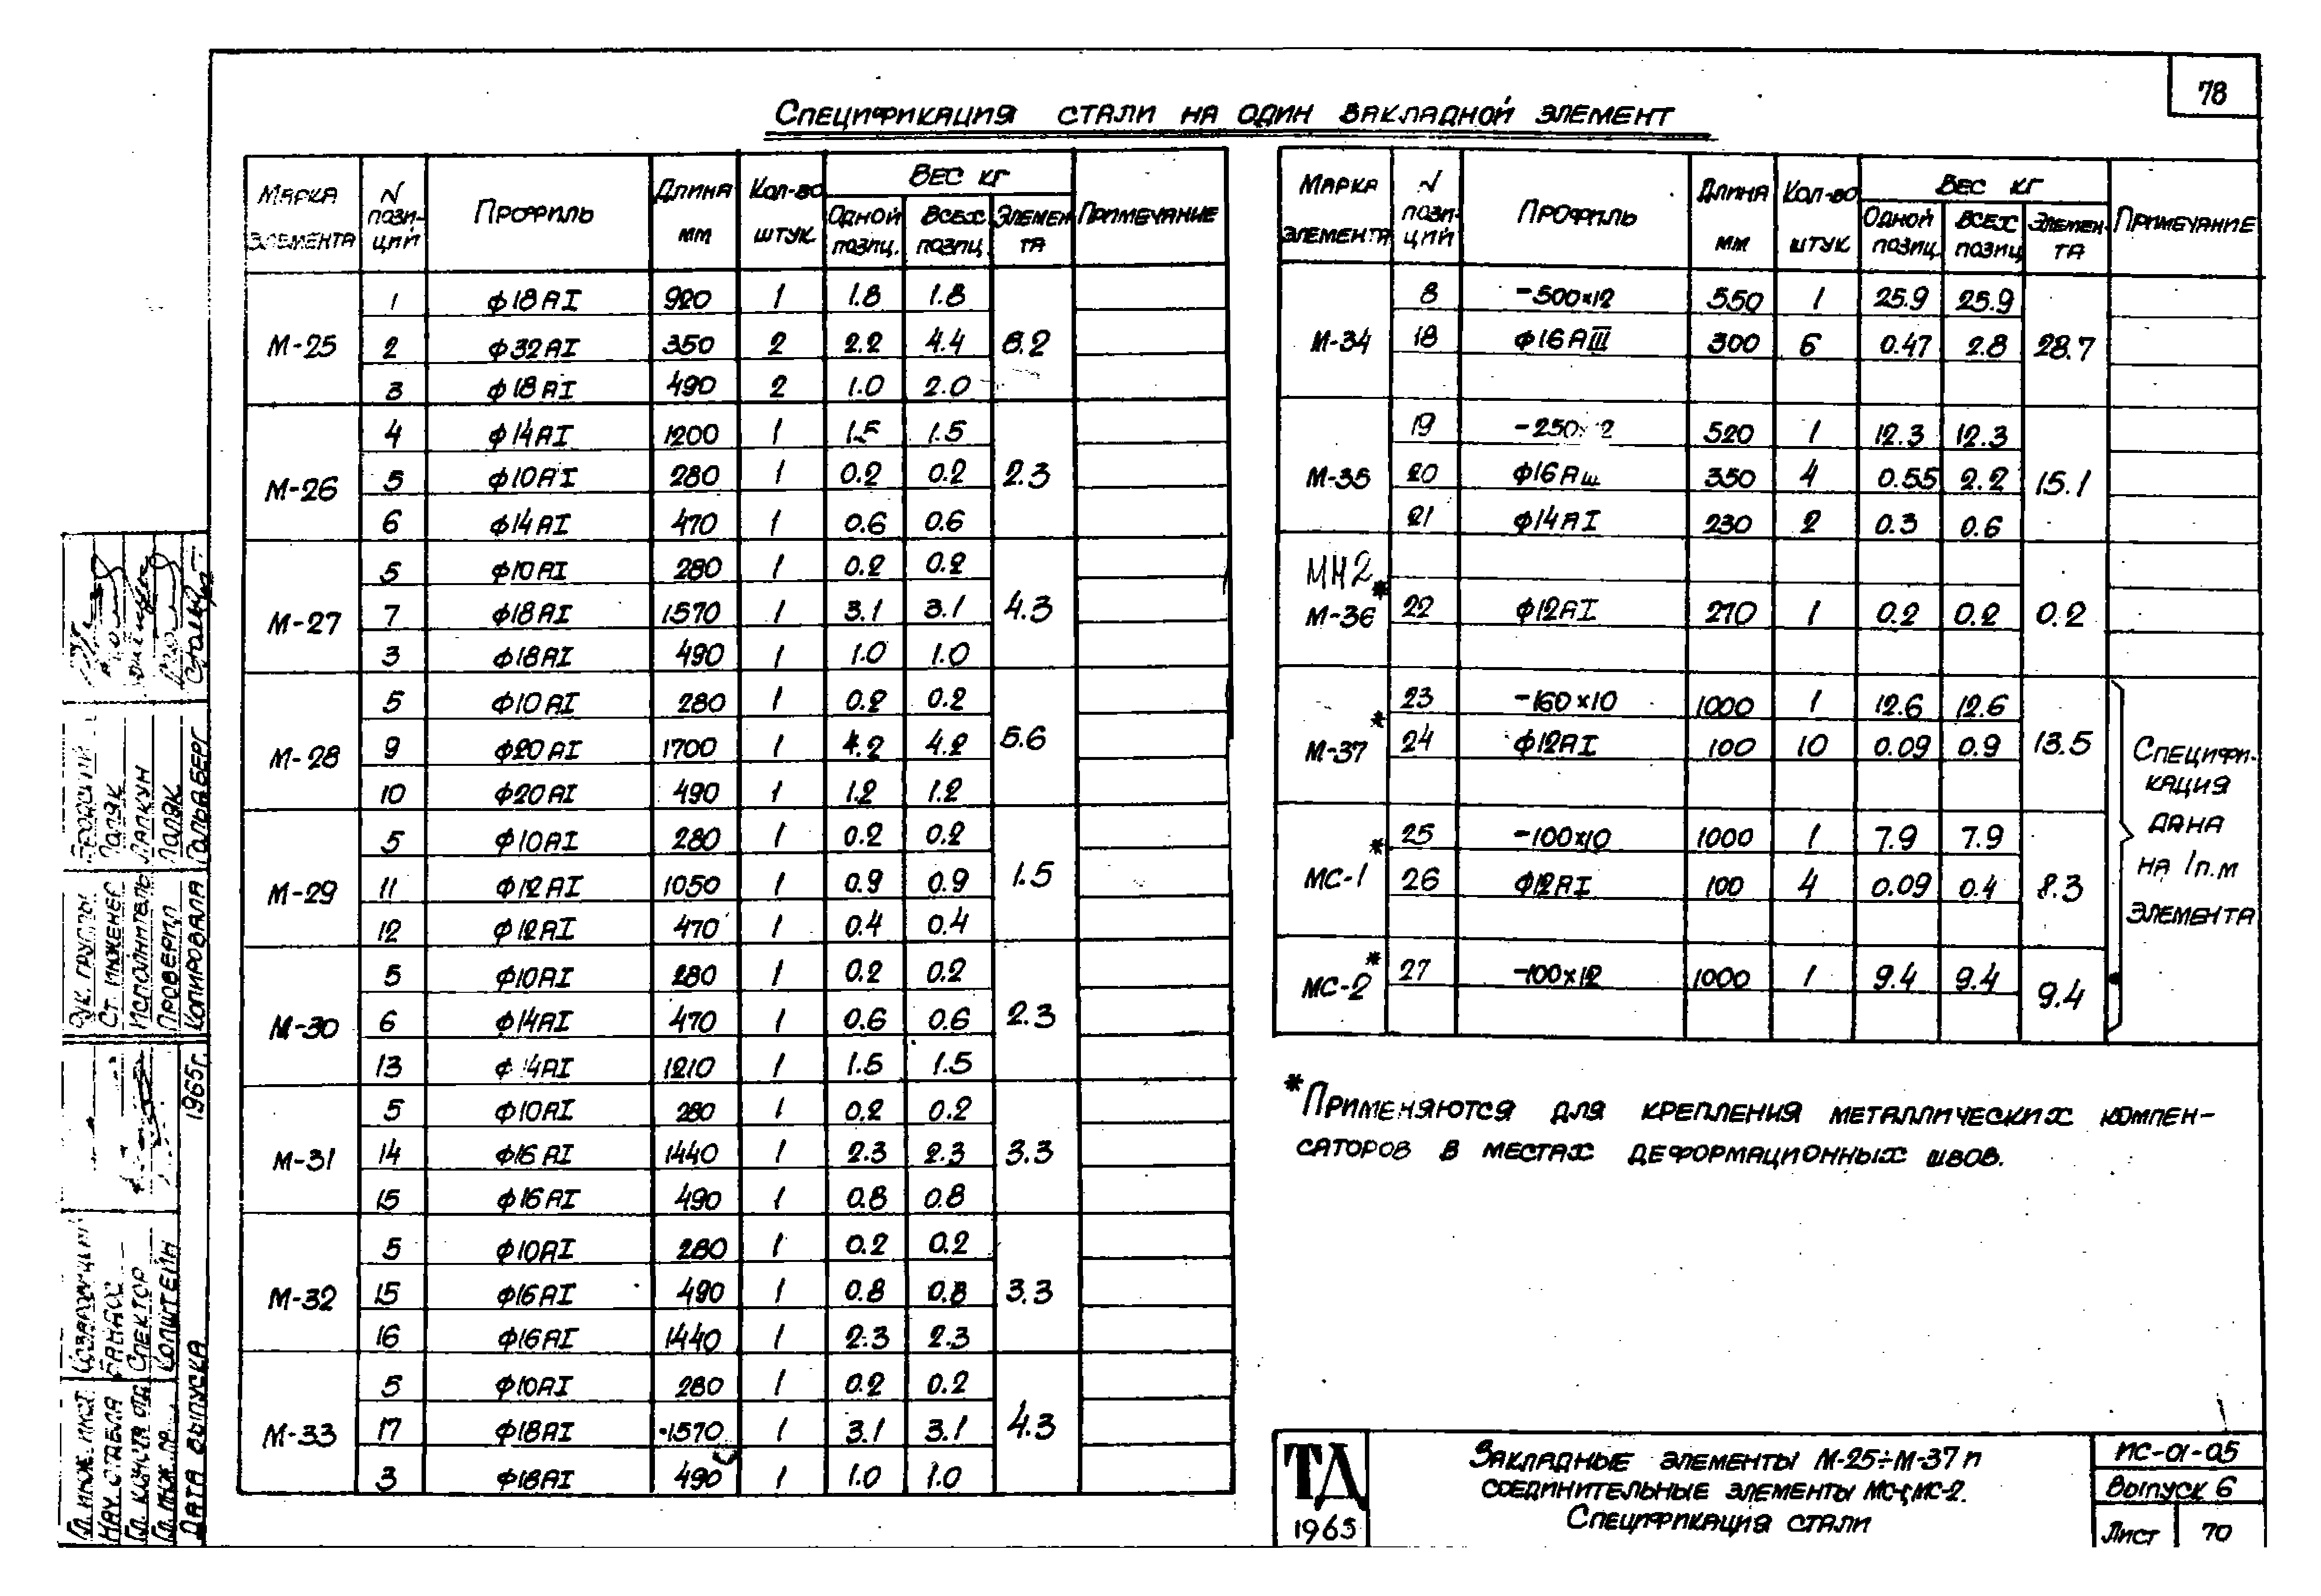 78
Спецификация стали на один закладной элемент
Марка элемента | N позиций | Профиль | Длина мм | Кол-во штук | Вес кг | Примечание
Одной позиц. | Всех позиц. | Элемента
М-25 | 1 | ф18АI | 920 | 1 | 1.8 | 1.8 | 8.2
2 | ф32АI | 350 | 2 | 2.2 | 4.4
3 | ф18АI | 490 | 2 | 1.0 | 2.0
М-26 | 4 | ф14АI | 1200 | 1 | 1.5 | 1.5 | 2.3
5 | ф10АI | 280 | 1 | 0.2 | 0.2
6 | ф14АI | 470 | 1 | 0.6 | 0.6
М-27 | 5 | ф10АI | 280 | 1 | 0.2 | 0.2 | 4.3
7 | ф18АI | 1570 | 1 | 3.1 | 3.1
3 | ф18АI | 490 | 1 | 1.0 | 1.0
М-28 | 5 | ф10АI | 280 | 1 | 0.2 | 0.2 | 5.6
9 | ф20АI | 1700 | 1 | 4.2 | 4.2
10 | ф20АI | 490 | 1 | 1.2 | 1.2
М-29 | 5 | ф10АI | 280 | 1 | 0.2 | 0.2 | 1.5
11 | ф12АI | 1050 | 1 | 0.9 | 0.9
12 | ф12АI | 470 | 1 | 0.4 | 0.4
М-30 | 5 | ф10АI | 280 | 1 | 0.2 | 0.2 | 2.3
6 | ф14АI | 470 | 1 | 0.6 | 0.6
13 | ф14АI | 1210 | 1 | 1.5 | 1.5
М-31 | 5 | ф10АI | 280 | 1 | 0.2 | 0.2 | 3.3
14 | ф16АI | 1440 | 1 | 2.3 | 2.3
15 | ф16АI | 490 | 1 | 0.8 | 0.8
М-32 | 5 | ф10АI | 280 | 1 | 0.2 | 0.2 | 3.3
15 | ф16АI | 490 | 1 | 0.8 | 0.8
16 | ф16АI | 1440 | 1 | 2.3 | 2.3
М-33 | 5 | ф10АI | 280 | 1 | 0.2 | 0.2 | 4.3
17 | ф18АI | 1570 | 1 | 3.1 | 3.1
3 | ф18АI | 490 | 1 | 1.0 | 1.0
Марка элемента | N позиций | Профиль | Длина мм | Кол-во штук | Вес кг | Примечание
Одной позиц. | Всех позиц | Элемента
М-34 | 8 | -500×12 | 550 | 1 | 25.9 | 25.9 | 28.7
18 | ф16АIII | 300 | 6 | 0.47 | 2.8
М-35 | 19 | -250×12 | 520 | 1 | 12.3 | 12.3 | 15.1
20 | ф16Аш | 350 | 4 | 0.55 | 2.2
21 | ф14АI | 230 | 2 | 0.3 | 0.6
МН2
М-36* | 22 | ф12АI | 270 | 1 | 0.2 | 0.2 | 0.2
М-37* | 23 | -160×10 | 1000 | 1 | 12.6 | 12.6 | 13.5
24 | ф12АI | 100 | 10 | 0.09 | 0.9
МС-1* | 25 | -100×10 | 1000 | 1 | 7.9 | 7.9 | 8.3
26 | ф12АI | 100 | 4 | 0.09 | 0.4
МС-2* | 27 | -100×12 | 1000 | 1 | 9.4 | 9.4 | 9.4
Специфи-
кация
дана
на 1п.м
элемента
*Применяются для крепления металлических компен-
саторов в местах деформационных швов.
ТД
1965
Закладные элементы М-25÷М-37 и
соединительные элементы МС-1; МС-2.
Спецификация стали
ИС-01-05
Выпуск 6
Лист 70
Рук. группы
Ст. инженер Поляк
Исполнитель Лапкун
Проверил Поляк
Копировала Гольдберг
Гл. инж. инст.
Нач. отдела
Гл. констр. отд. Спектор
Гл. инж. пр.
Дата выпуска 1965г.